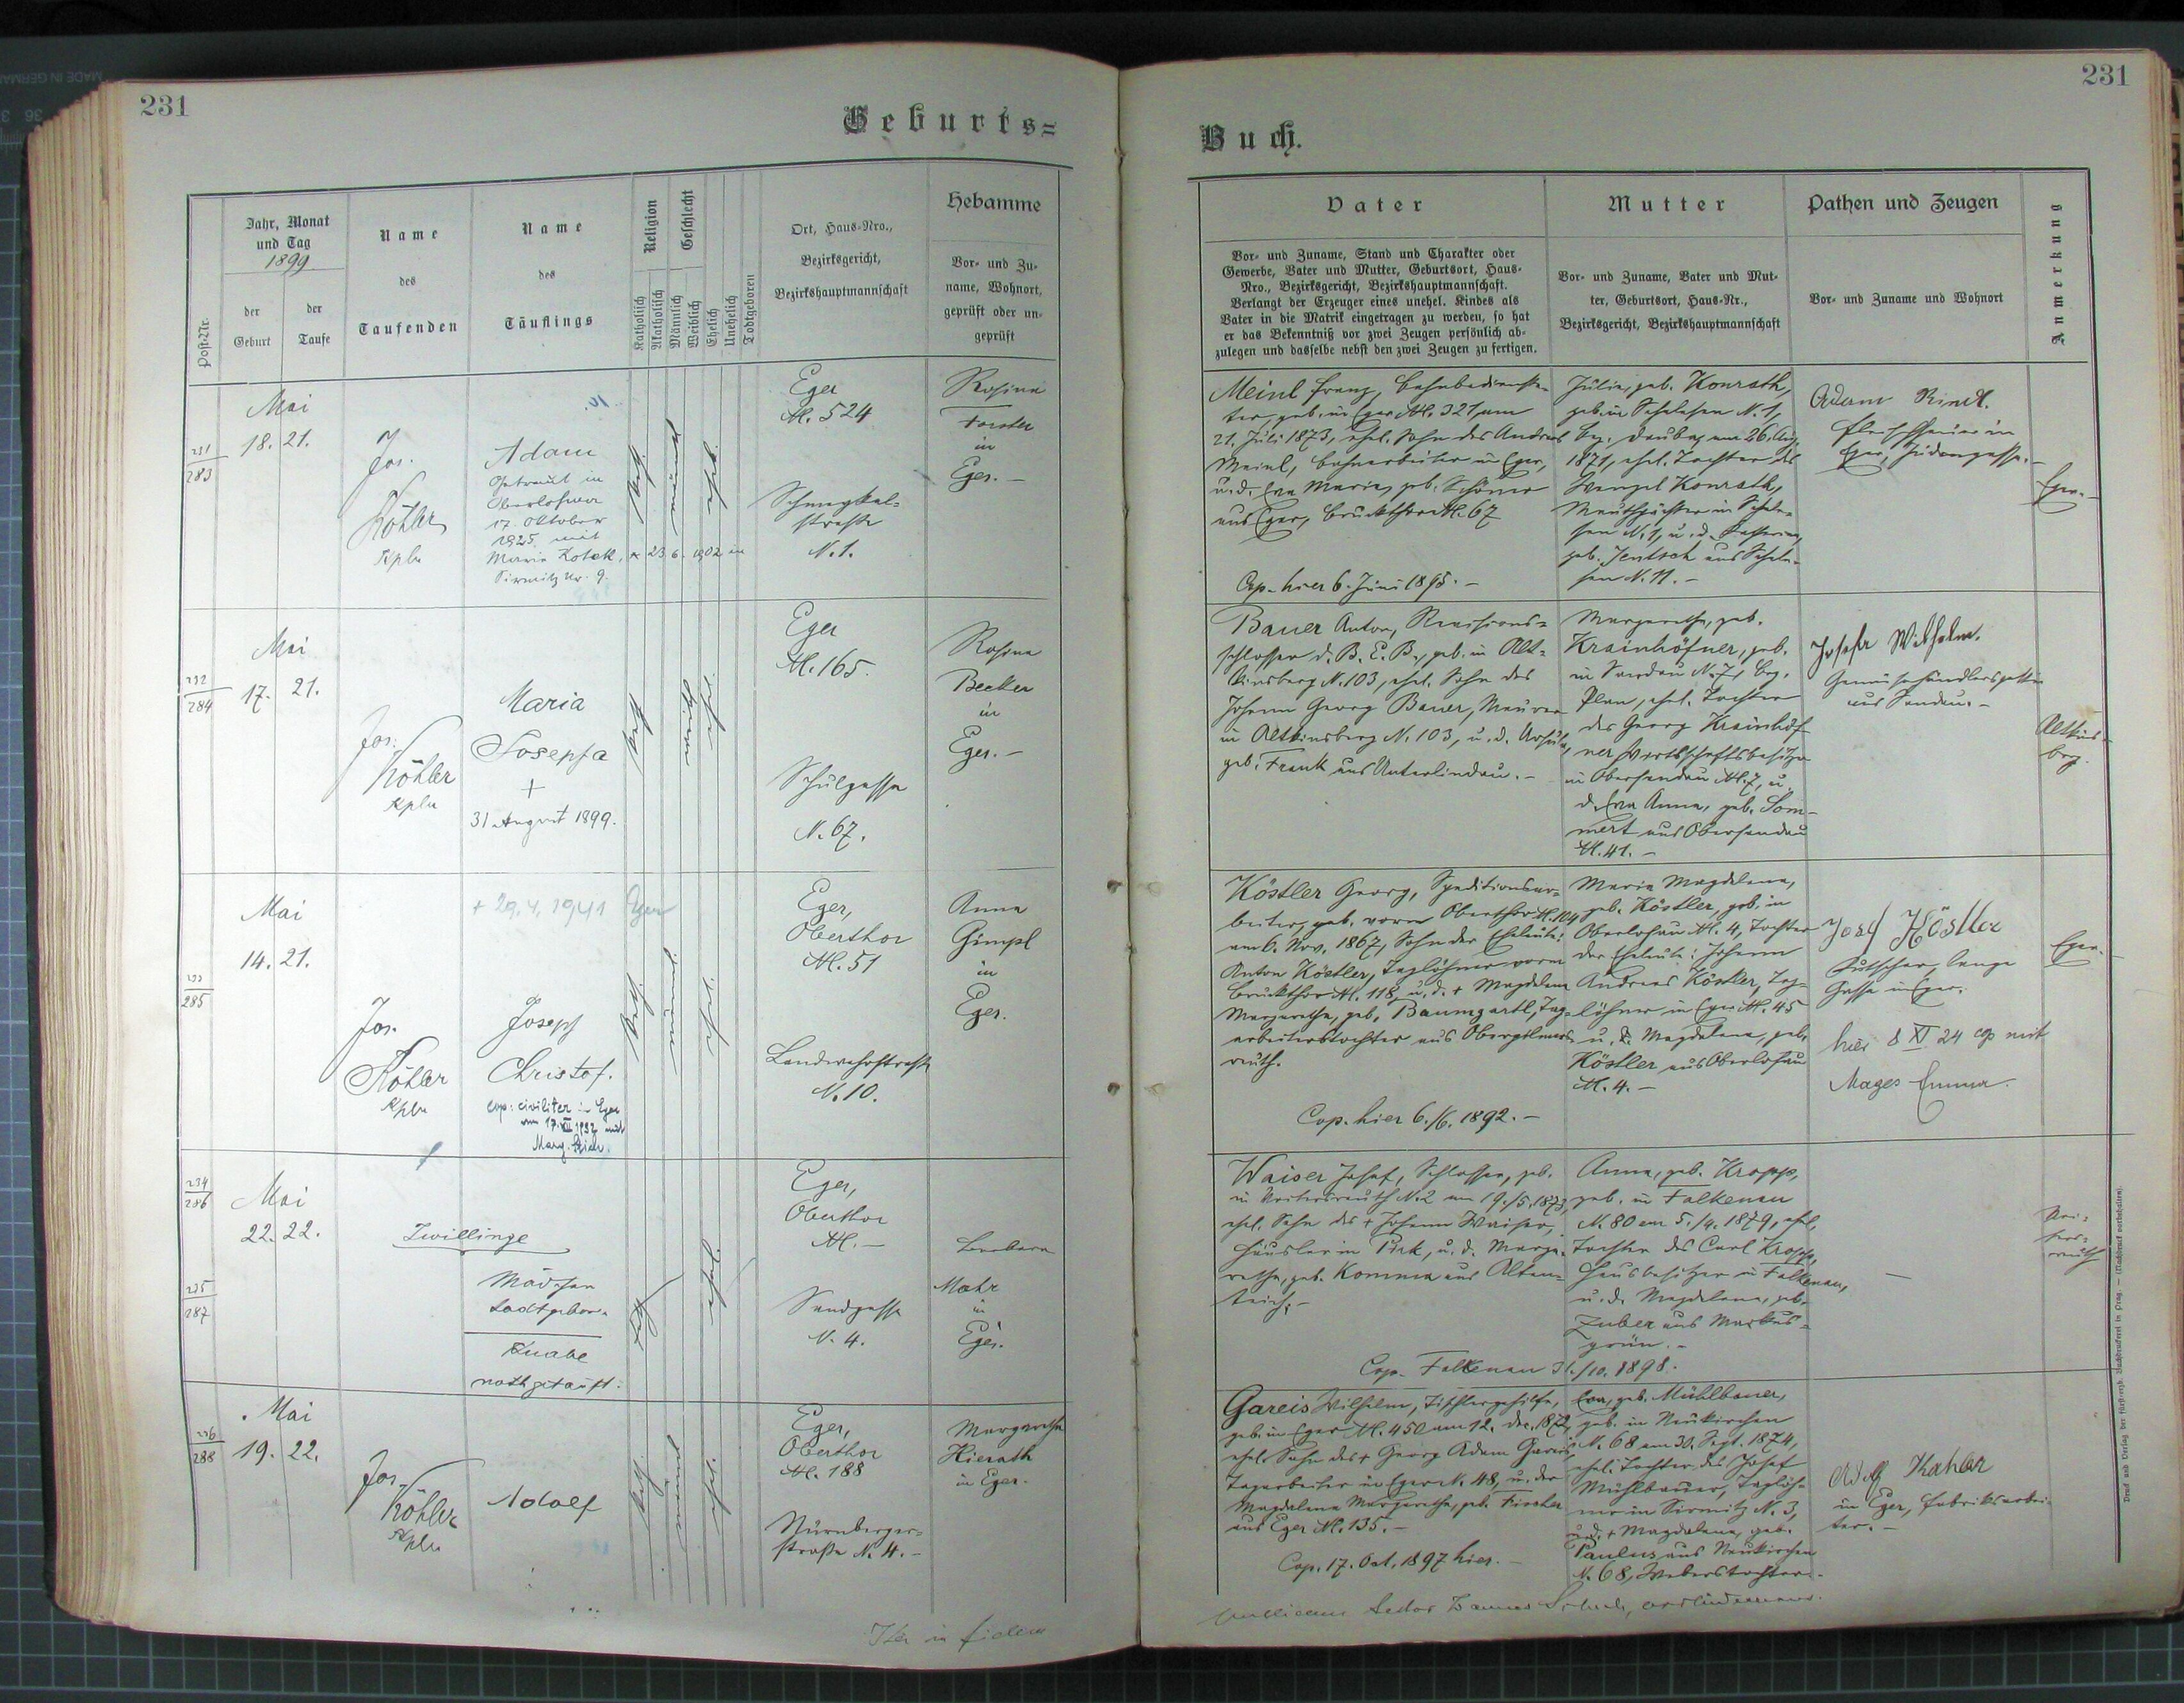 231
Geburts=
Post-Nr.
Jahr, Monat
und Tag
1899
der
Geburt
der
Taufe
Name
des
Taufenden
Name
des
Täuflings
Religion
Katholisch
Akatholisch
Geschlecht
Männlich
Weiblich
Ehelich
Unehelich
Todtgeboren
Ort, Haus-Nro.,
Bezirksgericht,
Bezirkshauptmannschaft
Hebamme
Vor- und Zu-
name, Wohnort,
geprüft oder un-
geprüft
231
283
Mai
18. 21.
Jos.
Köhler
Kpln
Adam
Getraut in
Oberlohma
17. Oktober
1925 mit
Maria Kotek, * 23. 6. 1902 in
Sirmitz Nr. 9.
kath.
männl.
ehel.
Eger
N. 524
Schmeykal-
straße
N. 1.
Rosina
Forster
in
Eger. -
232
284
Mai
17. 21.
Jos.
Köhler
Kpln
Maria
Josepfa
+
31 August 1899.
kath.
weibl.
ehel.
Eger
N. 165.
Schulgasse
N. 67.
Rosina
Becker
in
Eger. -
233
285
Mai
14. 21.
Jos.
Köhler
Kpln
+ 29. 4. 1941 Eger
Josepf
Christof.
cop: civiliter in Eger
am 17. XII 1932 mit
Marg.
kath.
männl.
ehel.
Eger,
Oberthor
N. 51
Landwehrstraße
N. 10.
Anna
Gimpl
in
Eger.
234
286
Mai
22. 22.
Zwillinge
235
287
Mädchen
todtgeboren
Knabe
nothgetauft.
kath.
ehel.
Eger,
Oberthor
N. -
Sandgasse
N. 4.
Barbara
Mahr
in
Eger.
236
288
Mai
19. 22.
Jos.
Köhler
Kpln
Adolf
kath.
männl.
ehel.
Eger,
Oberthor
N. 188
Nürnberger-
straße N. 4. -
Margaretha
Hierath
in Eger.
in fidem
231
Buch.
Vater
Vor- und Zuname, Stand und Charakter oder
Gewerbe, Vater und Mutter, Geburtsort, Haus-
Nro., Bezirksgericht, Bezirkshauptmannschaft.
Verlangt der Erzeuger eines unehel. Kindes als
Vater in die Matrik eingetragen zu werden, so hat
er das Bekenntniß vor zwei Zeugen persönlich ab-
zulegen und dasselbe nebst den zwei Zeugen zu fertigen.
Mutter
Vor- und Zuname, Vater und Mut-
ter, Geburtsort, Haus-Nr.,
Bezirksgericht, Bezirkshauptmannschaft
Pathen und Zeugen
Vor- und Zuname und Wohnort
Anmerkung
Meinl Franz, Bahnbedienste-
ter, geb. in Eger N. 321, am
21. Juli 1873, ehel. Sohn des Andreas
Meinl, Bahnarbeiter in Eger,
u. d. Eva Maria, geb. Schöner
aus Eger, Bruckthor N. 67
Cop. hier 6. Juni 1895. -
Julie, geb. Konrath,
geb. in Schelesen N. 1,
Bez. Dauba, am 26. Aug.
1871, ehel. Tochter des
Wenzel Konrath,
Mauthpächter in Schele-
sen N. 1, u. d. Katharina,
geb. Jentsch aus Schele-
sen N. 11. -
Adam Rindl.
Fleischhauer in
Eger, Judengasse. -
Eger. -
Bauer Anton, Revisions-
schlosser d. B. E. B., geb. in Alt-
kinsberg N. 103, ehel. Sohn des
Johann Georg Bauer, Maurer
in Altkinsberg N. 103, u. d. Ursula,
geb. Frank aus Unterlindau. -
Margaretha, geb.
Krainhöfner, geb.
in Sandau N. 7, Bez.
Plan, ehel. Tochter
des Georg Krainhöf-
ner, Wirtschaftsbesitzer
in Obersandau N. 7, u.
d. Eva Anna, geb. Som-
mert aus Obersandau
N. 41. -
Josefa Wilhelm.
Gemüsehändlersgattin
aus Sandau. -
Altkins-
berg.
Köstler Georg, Speditionsar-
beiter, geb. vorm Oberthor N. 104
am 6. Nov. 1867, Sohn der Eheleute:
Anton Köstler, Taglöhner vorm
Bruckthor N. 118, u. d. + Magdalena
Margaretha, geb. Baumgartl, Tag-
arbeiterstochter aus
reuth.
Cop. hier 6./6. 1892. -
Maria Magdalena,
geb. Köstler, geb. in
Oberlohma N. 4, Tochter
der Eheleute: Johann
Andreas Köstler, Tag-
löhner in Eger N. 45
u. d. Magdalena, geb.
Köstler aus Oberlohma
N. 4. -
Josef Köstler
Kutscher, lange
Gasse in Eger.
hier 8 XI 24 cop mit
Mages Emma.
Eger.
Waiser Josef, Schlosser, geb.
in N. 2 am 19./5. 1873,
ehel. Sohn des + Johann Waiser,
Häusler in Pirk, u. d. Marga-
retha, geb. Komma aus Alten-
teich. -
Cop. Falkenau 31./10. 1898.
Anna, geb. Kropp,
geb. in Falkenau
N. 80 am 5./4. 1879, ehel.
Tochter des Carl Kropp,
Hausbesitzer in Falkenau,
u. d. Magdalena, geb.
Zuber aus Markus-
grün. -
-
Gareis Wilhelm, Tischlergehilfe,
geb. in Eger N. 450 am 12. Dec. 1872,
ehel. Sohn des + Georg Adam Gareis,
Tagarbeiter in Eger N. 48, u. der
Magdalena Margaretha, geb. Fischer
aus Eger N. 135. -
Cop. 17. Oct. 1897 hier. -
Eva, geb. Mühlbauer,
geb. in Neukirchen
N. 68 am 30. Sept. 1874,
ehel. Tochter des Josef
Mühlbauer, Taglöh-
ner in Sirmitz N. 3,
u. d. + Magdalena, geb.
Paulus aus Neukirchen
N. 68, Weberstochter. -
Adolf Kahar
in Eger, Fabriksarbei-
ter. -
Druck und Verlag der fürsterzb. Buchdruckerei in Prag. — (Nachdruck vorbehalten).